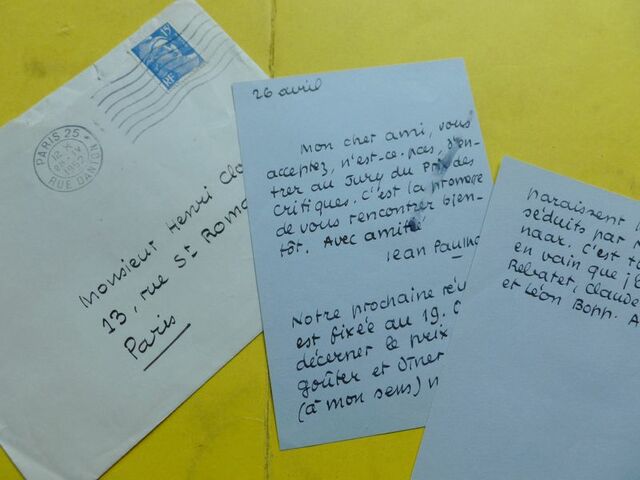 PARIS 25
26-IV
1952
RUE DANTON
15F
RF
Monsieur Henri Clo
13, rue St Roma
Paris
26 avril
Mon cher ami, vous
acceptez, n'est-ce-pas, d'en-
trer au Jury du Prix des
Critiques. C'est la promesse
de vous rencontrer bien-
tôt. Avec amitié
Jean Paulha
Notre prochaine réu
est fixée au 19.
décerner le prix
goûter et dîner
(à mon sens)
paraissent
séduits par
naar. C'est
en vain que j'
Rebatet, Claude
et Léon Bopp. A